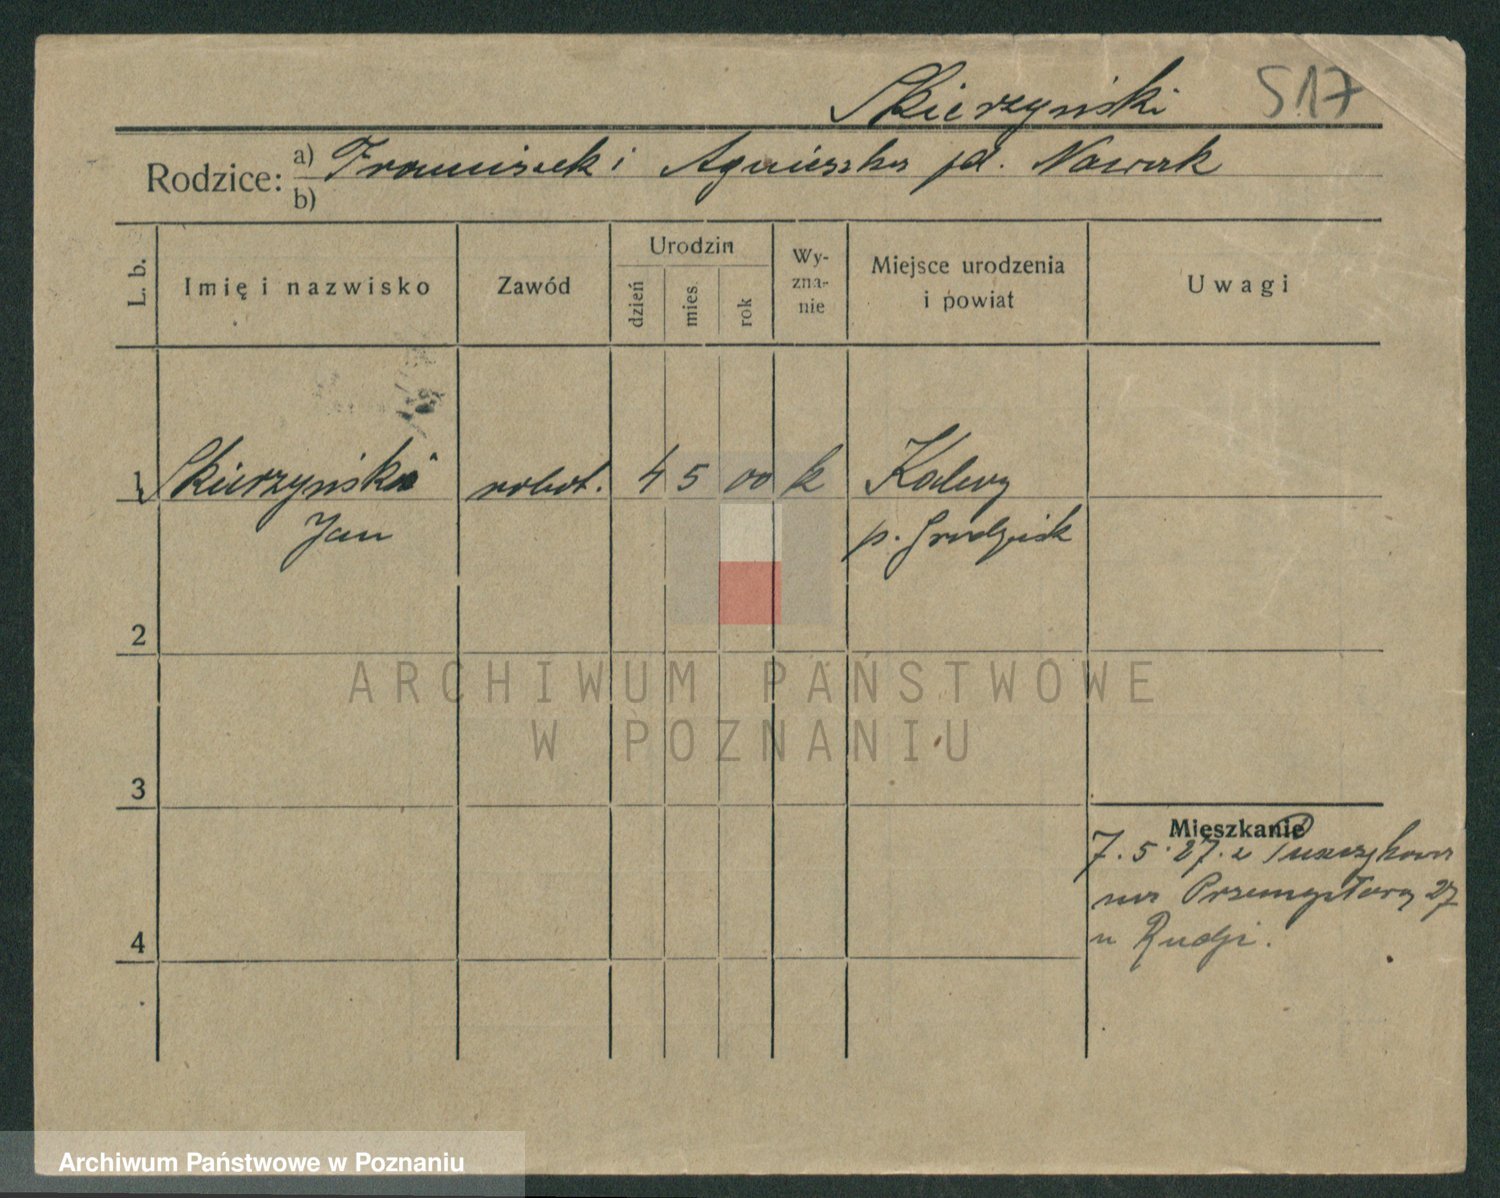 Skierzyński S17
Rodzice: a) Franciszek i Agnieszka pd. Nowak
b)
L. b.
Imię i nazwisko
Zawód
Urodzin
dzień
mies.
rok
Wy-
zna-
nie
Miejsce urodzenia
i powiat
Uwagi
1 Skierzyński robot. 4 5 00 k Kalewy
Jan p. Grodzisk
2
ARCHIWUM PAŃSTWOWE
W POZNANIU
3
Mieszkanie
7. 5. 27. z Puszczykowa
na Przemysłową 27
u Rudzi.
4
Archiwum Państwowe w Poznaniu